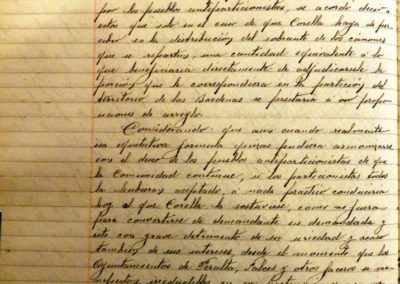 por los pueblos antiparticionistas, se acordó decir
estos que solo en el caso de que Corella haya de per
cibir en la distribución del sobrante de los cánones
que se repartan, una cantidad equivalente a lo
que beneficiaría directamente de adjudicarsele la
porción que le correspondiera en la partición del
territorio de las Bardenas se prestaría a oir proposi
ciones de arreglo.
Considerando: que aun cuando realmente
esa equitativa formula quizas pudiera armonizarse
con el deseo de los pueblos antiparticionistas de que
la Comunidad continue, si los particionistas todos
la hubieran aceptado, a nada practico conduciria
hoy el que Corella la sostuviese, como no fuera
para convertirse de demandante en demandada y
esto con grave detrimento de su seriedad y acaso
tambien de sus intereses, desde el momento que los
Ayuntamientos de Peralta, Falces y otros faceros se